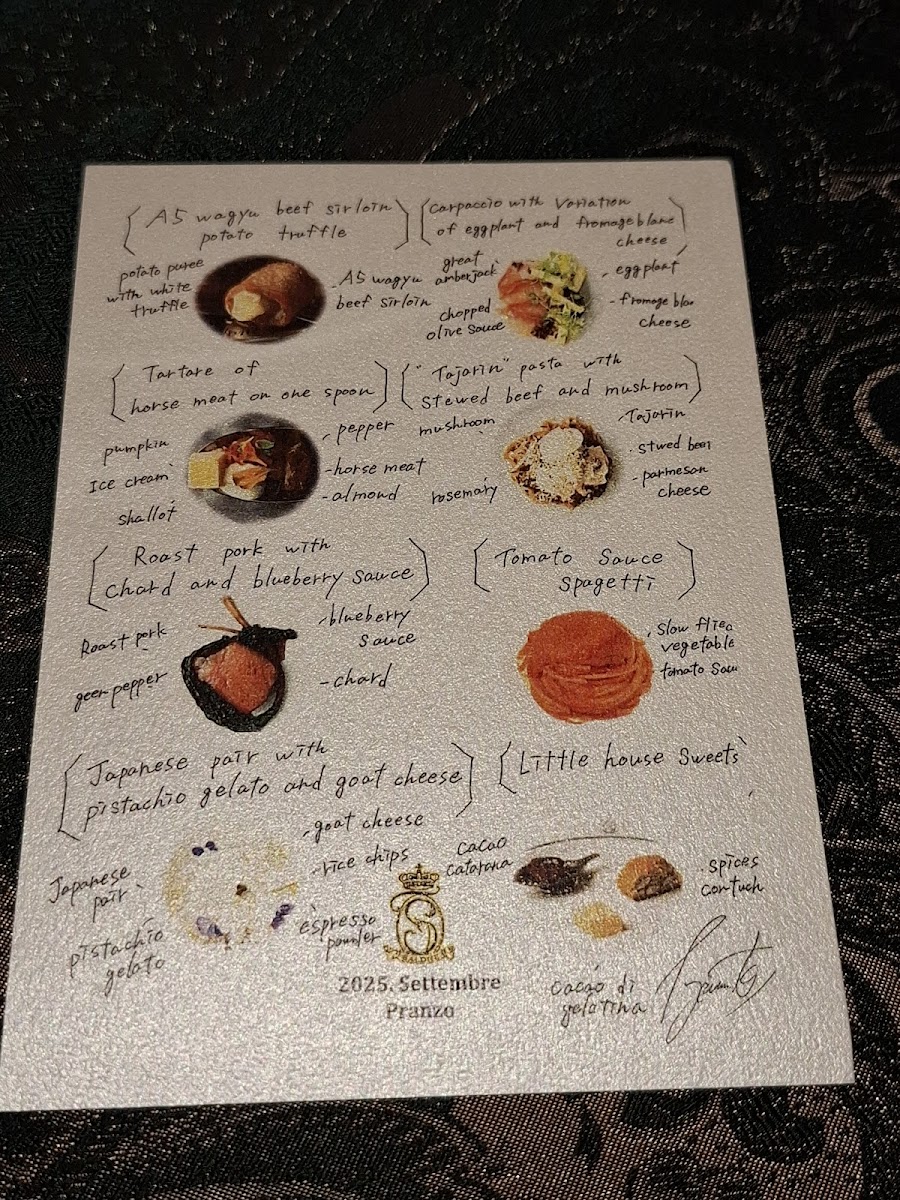 A5 wagyu beef sirloin
potato truffle
potato puree
with white
truffle
A5 wagyu
beef sirloin
Carpaccio with Variation
of eggplant and fromage blanc
cheese
great
amberjack
chopped
olive sauce
eggplant
fromage blan
cheese
Tartare of
horse meat on one spoon
pumpkin
Ice cream
shallot
pepper
horse meat
almond
"Tajarin" pasta with
stewed beef and mushroom
mushroom
rosemary
Tajarin
stwed beef
parmesan
cheese
Roast pork with
chard and blueberry sauce
Roast pork
geen pepper
blueberry
sauce
chard
Tomato Sauce
Spagetti
slow flied
vegetable
tomato Sau
Japanese pair with
pistachio gelato and goat cheese
Japanese
pair
pistachio
gelato
goat cheese
rice chips
espresso
pownler
Little house Sweets
cacao
catarana
spices
contuch
cacao di
gelatina
2025. Settembre
Pranzo